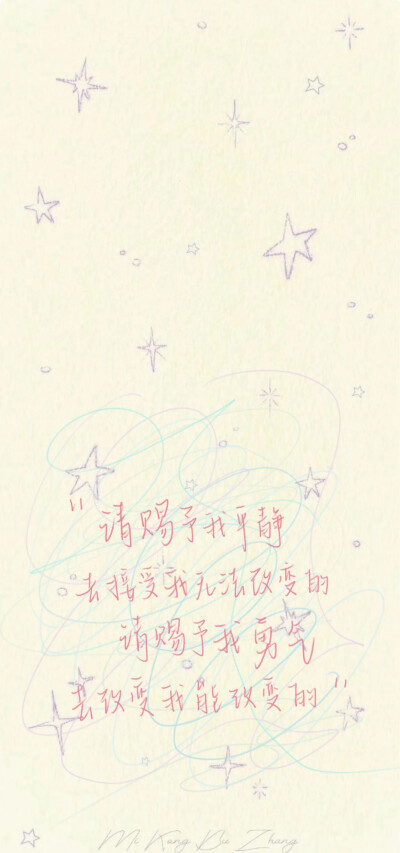 "请赐予我平静
去接受我无法改变的
请赐予我勇气
去改变我能改变的"
Mi Kung Bu Zhang